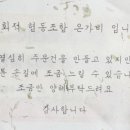 회적 협동조합 은가비 입니
열심히 주문건을 만들고 있지만
손길에 조금 느릴 수 있습니
조금만 양해부탁드려요
감사합니다